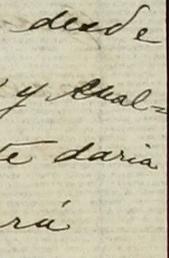 desde
y cual=
te daria
rá